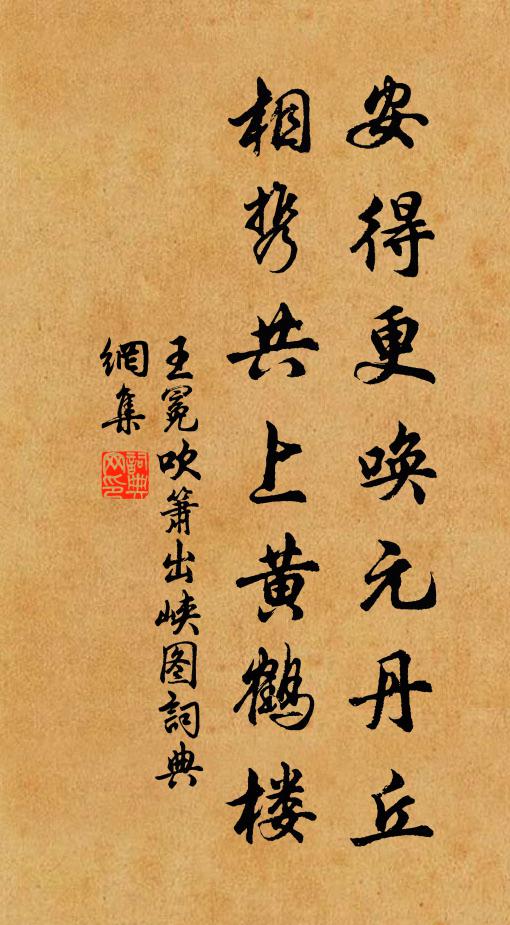 安得更唤元丹丘
相携共上黄鹤楼
王冕吹箫出峡图詞典
網集
詞典网印